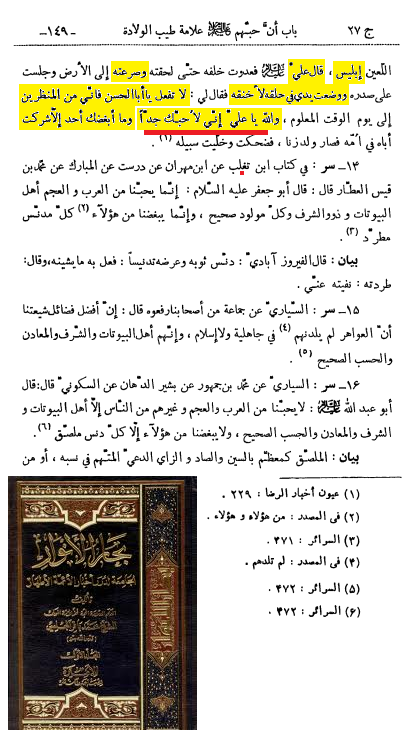 ج ٢٧ باب أنّ حبّهم ﷺ علامة طيب الولادة -١٤٩-
اللّعين إبليس ، قال عليّ ﷺ فعدوت خلفه حتّى لحقته وصرعته إلى الأرض وجلست
على صدره ووضعت يدي في حلقه لأخنقه فقال لي : لا تفعل يا أبا الحسن فانّي من المنظرين
إلى يوم الوقت المعلوم ، والله يا عليّ إنّي لأحبّك جدّاً وما أبغضك أحد إلّا شركت
أباه في اُمّه فصار ولدزنا ، فضحكت وخلّيت سبيله (١) .
١٤ــ سر : في كتاب ابن تغلب عن ابن مهران عن درست عن المبارك عن محمّد بن
قيس العطّار قال : قال أبو جعفر عليه السّلام : إنّما يحبّنا من العرب و العجم أهل
البيوتات و ذوو الشرف وكلّ مولود صحيح ، وإنّما يبغضنا من هؤلاء (٢) كلّ مدنّس
مطرّد (٣) .
بيان : قال الفيروز آبادي : دنّس ثوبه وعرضه تدنيساً : فعل به مايشينه، وقال:
طردته : نفيته عنّي .
١٥ــ سر : السيّاري عن جماعة من أصحابنا رفعوه قال : إنّ أفضل فضائل شيعتنا
أنّ العواهر لم يلدنهم (٤) في جاهلية ولا إسلام ، وإنّهم أهل البيوتات والشرف والمعادن
والحسب الصحيح (٥) .
١٦ــ سر : السياري عن محمّد بن جمهور عن بشير الدّهان عن السكوني قال: قال
أبو عبد الله ﷺ : لايحبّنا من العرب والعجم و غيرهم من النّاس إلّا أهل البيوتات و
الشرف والمعادن والحسب الصحيح ، ولايبغضنا من هؤلاء إلّا كلّ دنس ملصق (٦) .
بيان : الملصّق كمعظّم بالسين والصاد و الزاي الدعيّ المتّهم في نسبه ، أو من
(١) عيون أخبار الرضا : ٢٢٩ .
(٢) فى المصدر : من هؤلاء و هؤلاء .
(٣) السرائر : ٤٧١ .
(٤) فى المصدر : لم تلدهم .
(٥) السرائر : ٤٧٢ .
(٦) السرائر : ٤٧٢ .
بحار الأنوار
الجامعة لدرر أخبار الأئمة الأطهار
تأليف